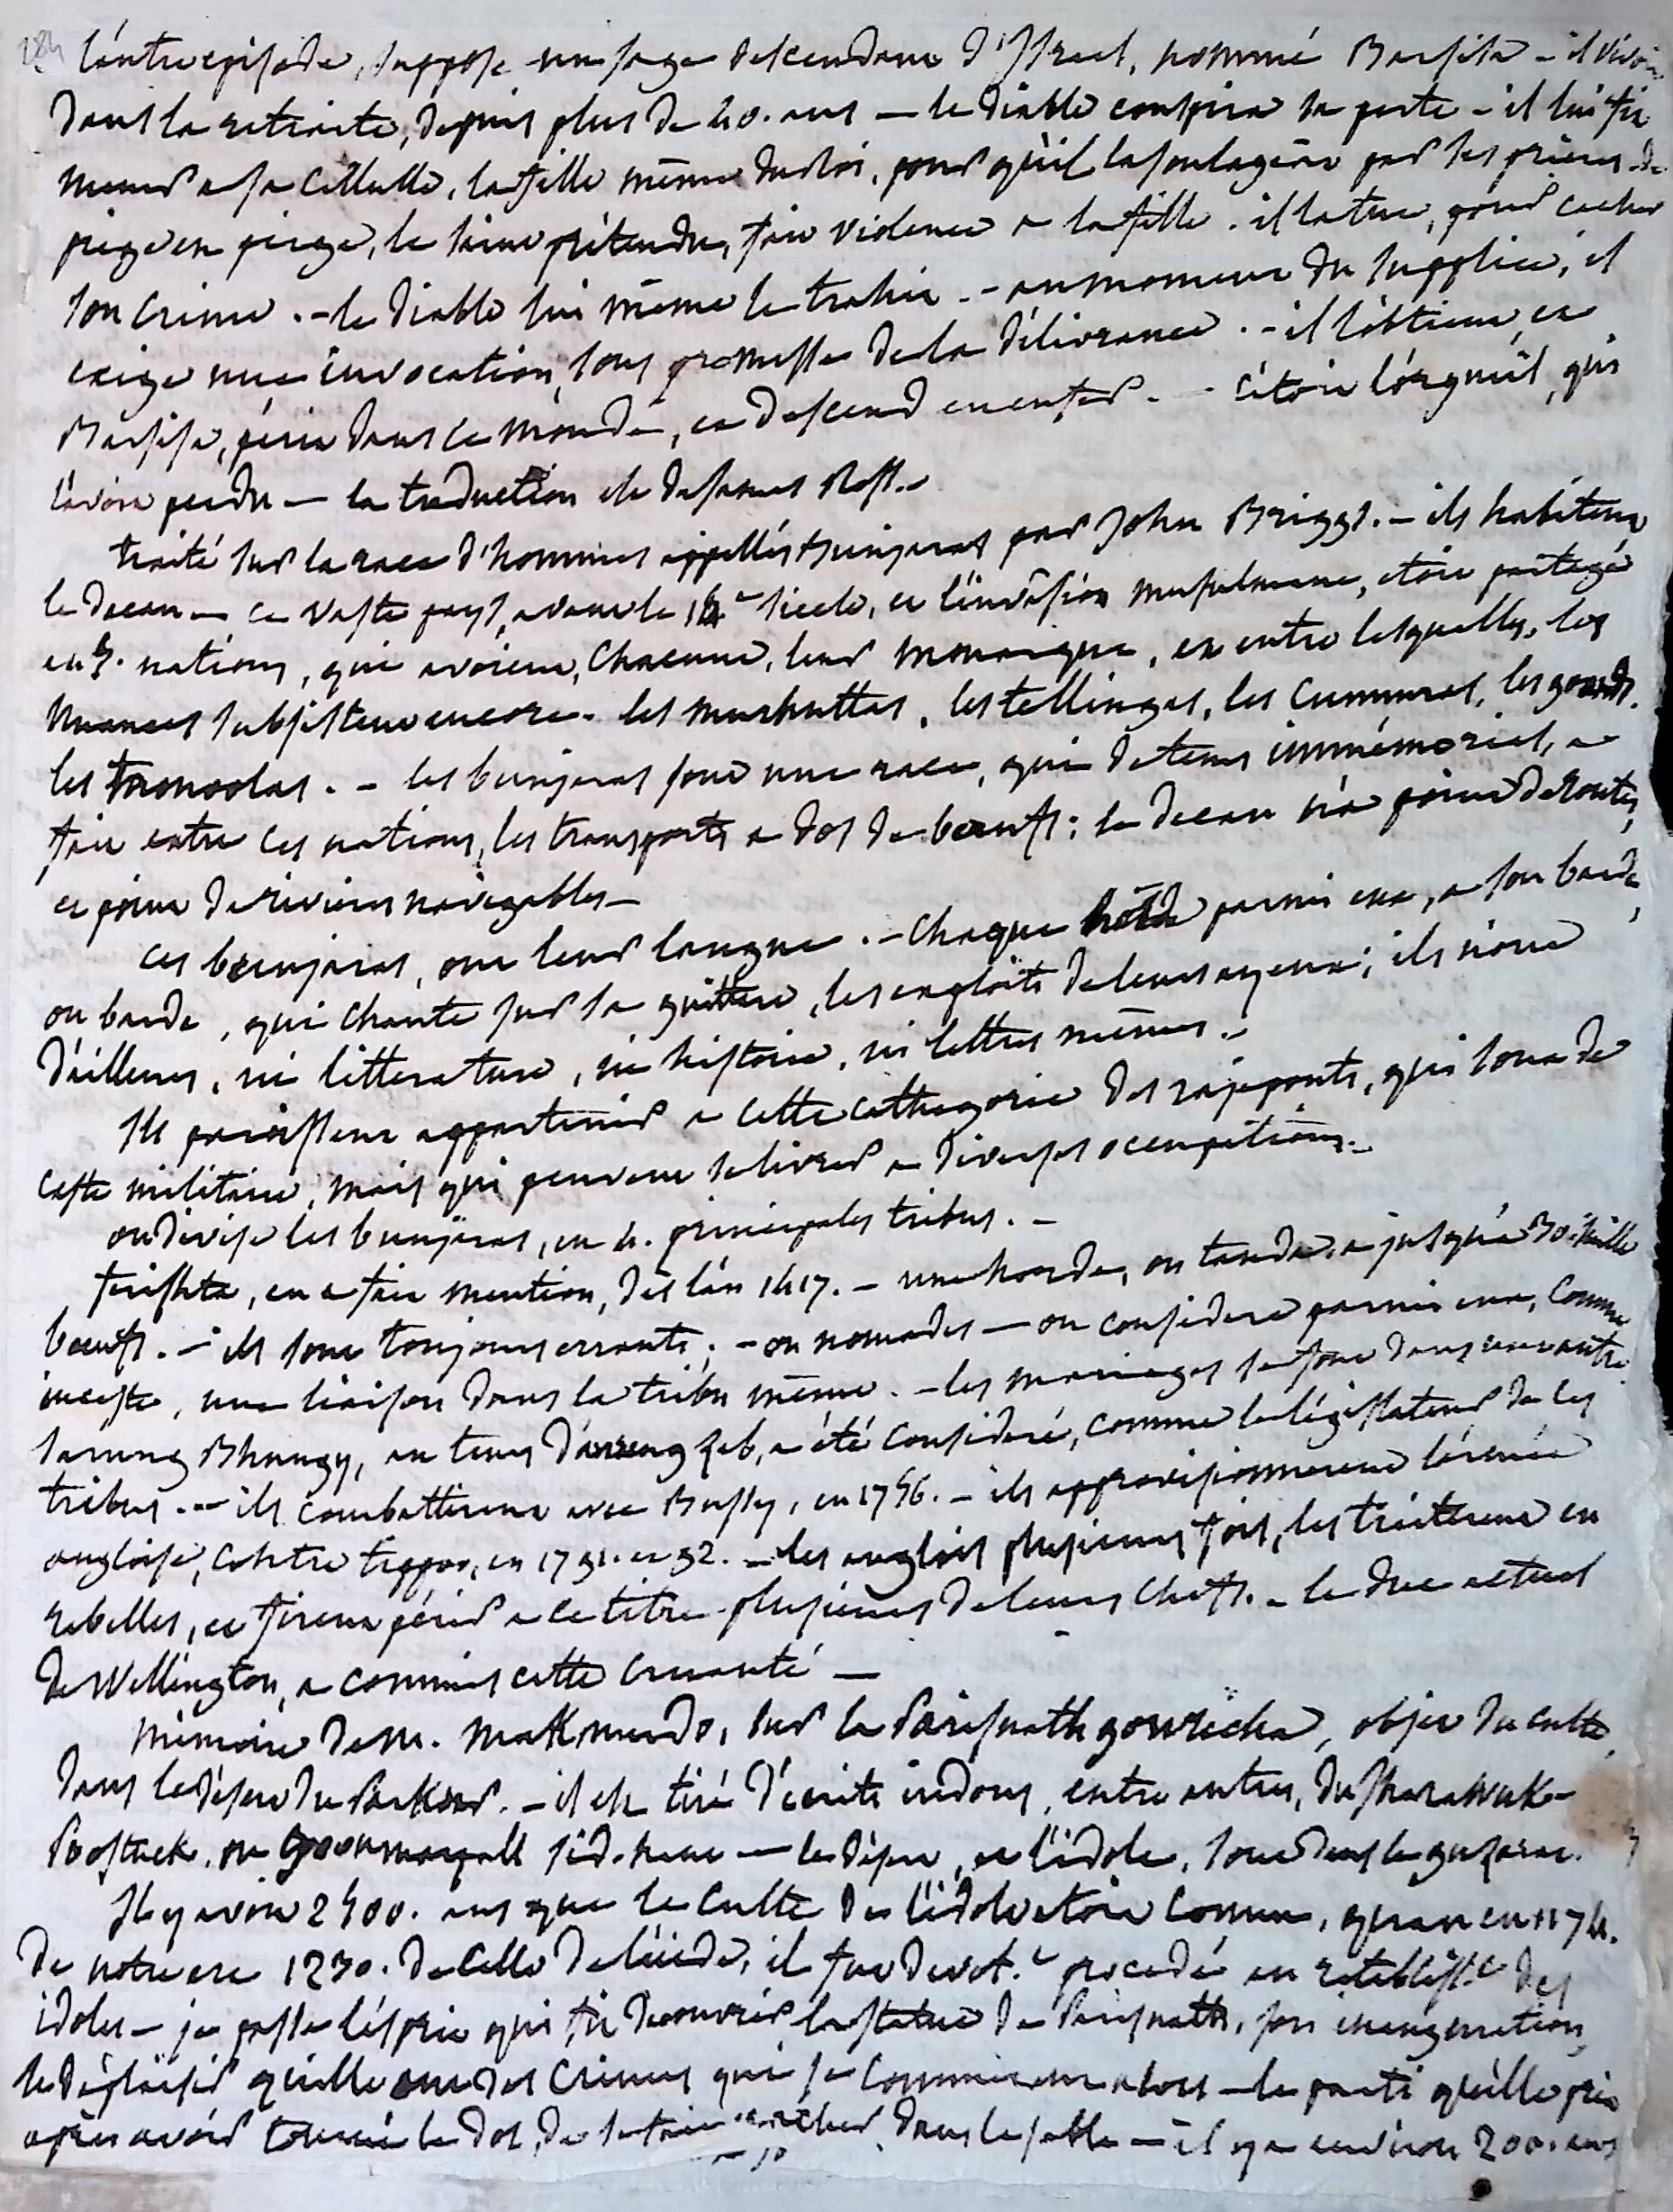 284
l'autre episode, suppose un sage descendant d'Israel, nommé Barsisa - il vivoit
dans la retraite, depuis plus de 40. ans — le diable conspira sa perte - il lui fit
mener a sa cellulle, la fille même du roi, pour qu'il la soulageat par ses prieres. de
piege en piege, le saint prétendu, fait violence a la fille. il la tue, pour cacher
son crime. - le diable lui même le trahit. - au moment du supplice, il
exige une invocation, sous promesse de la délivrance. - il l'obtient, et
Barsisa, périt dans ce monde, et descend en enfer. - c'étoit l'orgueil, qui
l'avoit perdu — la traduction est de James Ross. -
traité sur la race d'hommes appellés Bunjaras par John Briggs. - ils habitent
le decan — ce vaste pays, avant le 14e siecle, et l'invasion musulmane, étoit partagé
en 5. nations, qui avoient, chacune, leur monarque, et entre lesquelles, les
nuances subsistent encore. les murhuttas, les tellingas, les cummras, les goands.
les . - les bunjaras sont une race, qui de tems immémorial, a
fait entre ces nations, les transports a dos de bœufs: le decan n'a point de routes,
et point de rivieres navigables —
ces bunjaras, ont leur langue. - chaque horde parmi eux, a son barde,
ou barde, qui chante sur sa guittare, les exploits de leurs ayeux; ils n'ont
d'ailleurs, ni litterature, ni histoire, ni lettres mêmes. -
Ils paroissent appartenir a cette cathegorie des rajepouts, qui sont de
caste militaire, mais qui peuvent se livrer a diverses occupations. -
on divise les bunjaras, en 4. principales tribus. -
ferishta, en a fait mention, dès l'an 1417. - une horde, ou tanda, a jusqu'à mille
bœufs. - ils sont toujours errants; - ou nomades — on considere parmi eux, comme
inceste, une liaison dans la tribu même. - les mariages se font dans une autre.
Sarung Bhungy, au tems d'aureng zeb, a été consideré, comme le législateur de ces
tribus. - ils combattirent avec Bussy, en 1756. - ils approvisionnerent l'armée
angloise, contre tippoo, en 1791. et 92. - les anglois plusieurs fois, les traiterent en
rebelles, et firent périr a ce titre plusieurs de leurs chefs. - le duc actuel
de Wellington, a commis cette cruauté —
Mémoire de M. MakMurdo, sur la Parisnath gowricha, objet du culte,
dans le désert du Parkur. - il est tiré d'écrits indous, entre autres, du
, ou — le désert, et l'idole, sont dans le guzarat.
Il y avoit 2500. ans que le culte de l'idole étoit connu, quand en 1174.
de notre ere 1230. de celle de l'inde, il fut devot.t procedé au retablisst. des
idoles — je passe l'esprit qui fit decouvrir la statue de Parisnath, son inauguration,
le déplaisir qu'elle eut des crimes qui se commirent alors — le parti qu'elle prit
après avoir tourné le dos, de se faire cacher dans le sable — il y a environ 200. ans